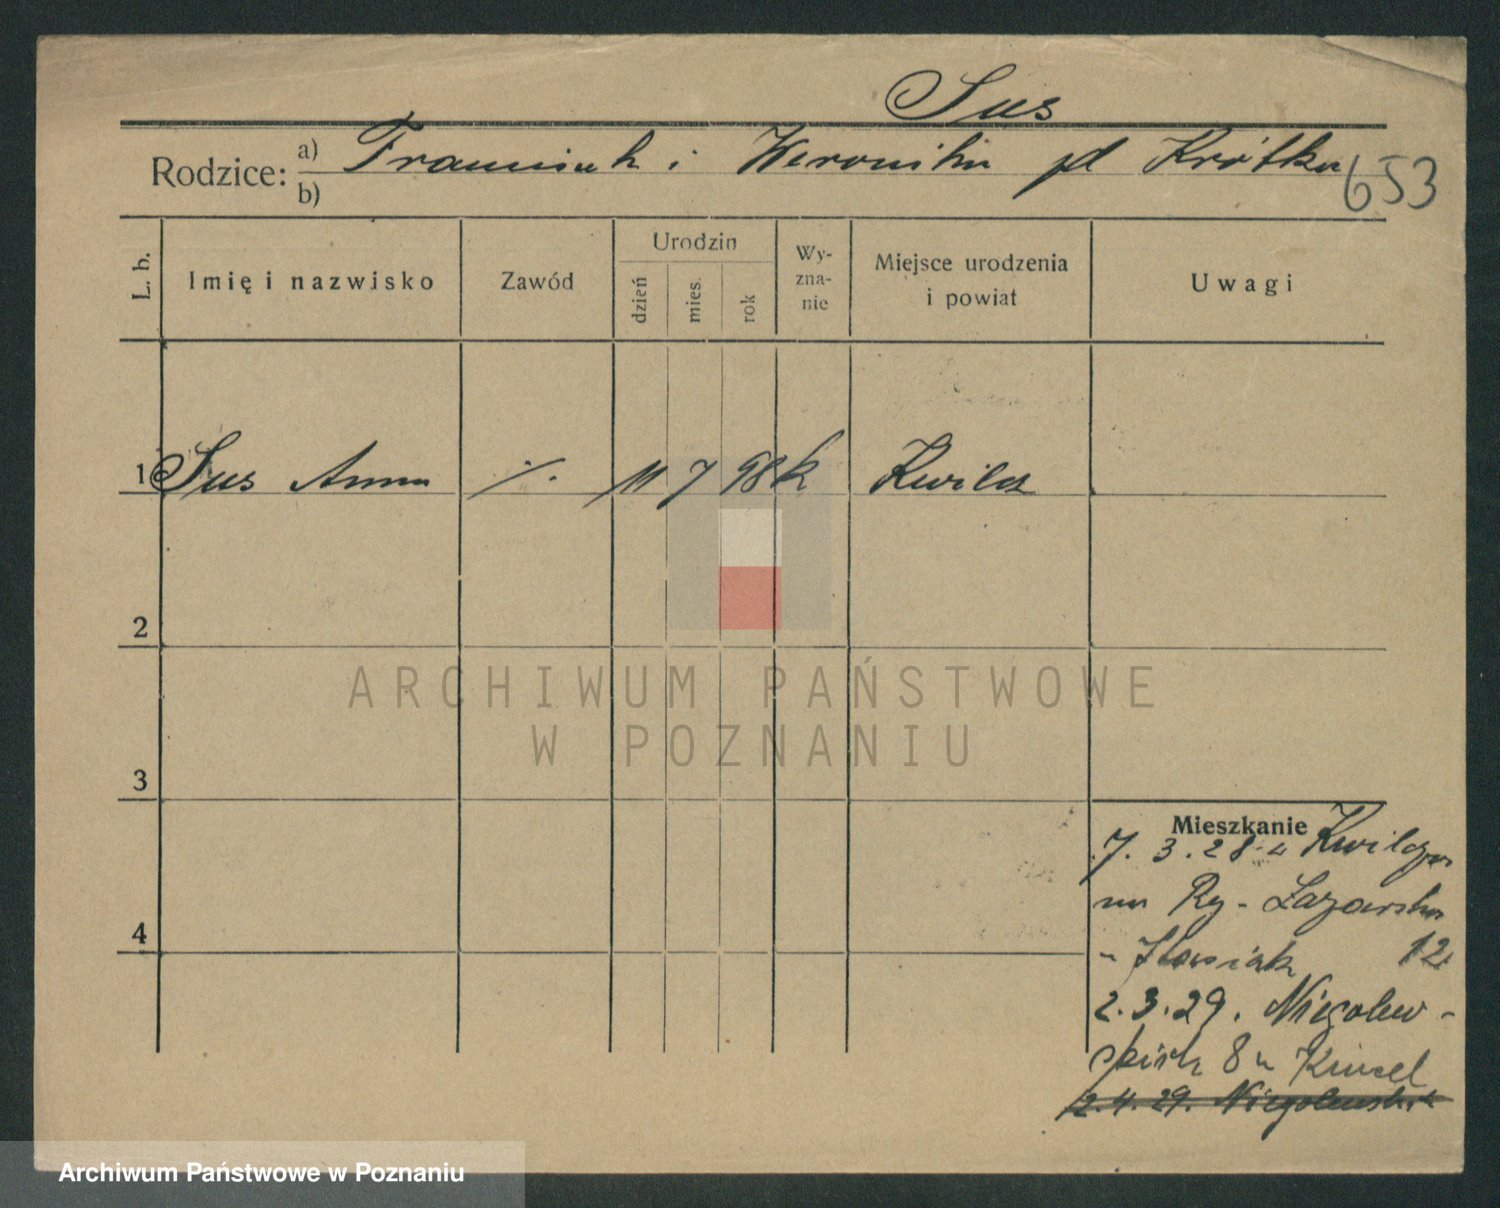 Sus
Rodzice: a) Franciszek i Weronika zd Krótka
b)
653
L. b.
Imię i nazwisko
Zawód
Urodzin
dzień
mies.
rok
Wy-
zna-
nie
Miejsce urodzenia
i powiat
Uwagi
1 Sus Anna ·/. 11 7 98 k Kwilcz
2
ARCHIWUM PAŃSTWOWE
W POZNANIU
3
Mieszkanie
7. 3. 28 Kwilcz
Ry - Łazarska
12
4
2. 3. 29. Niegolew-
skich 8 u
2. 4. 29. Niegolewskich
Archiwum Państwowe w Poznaniu